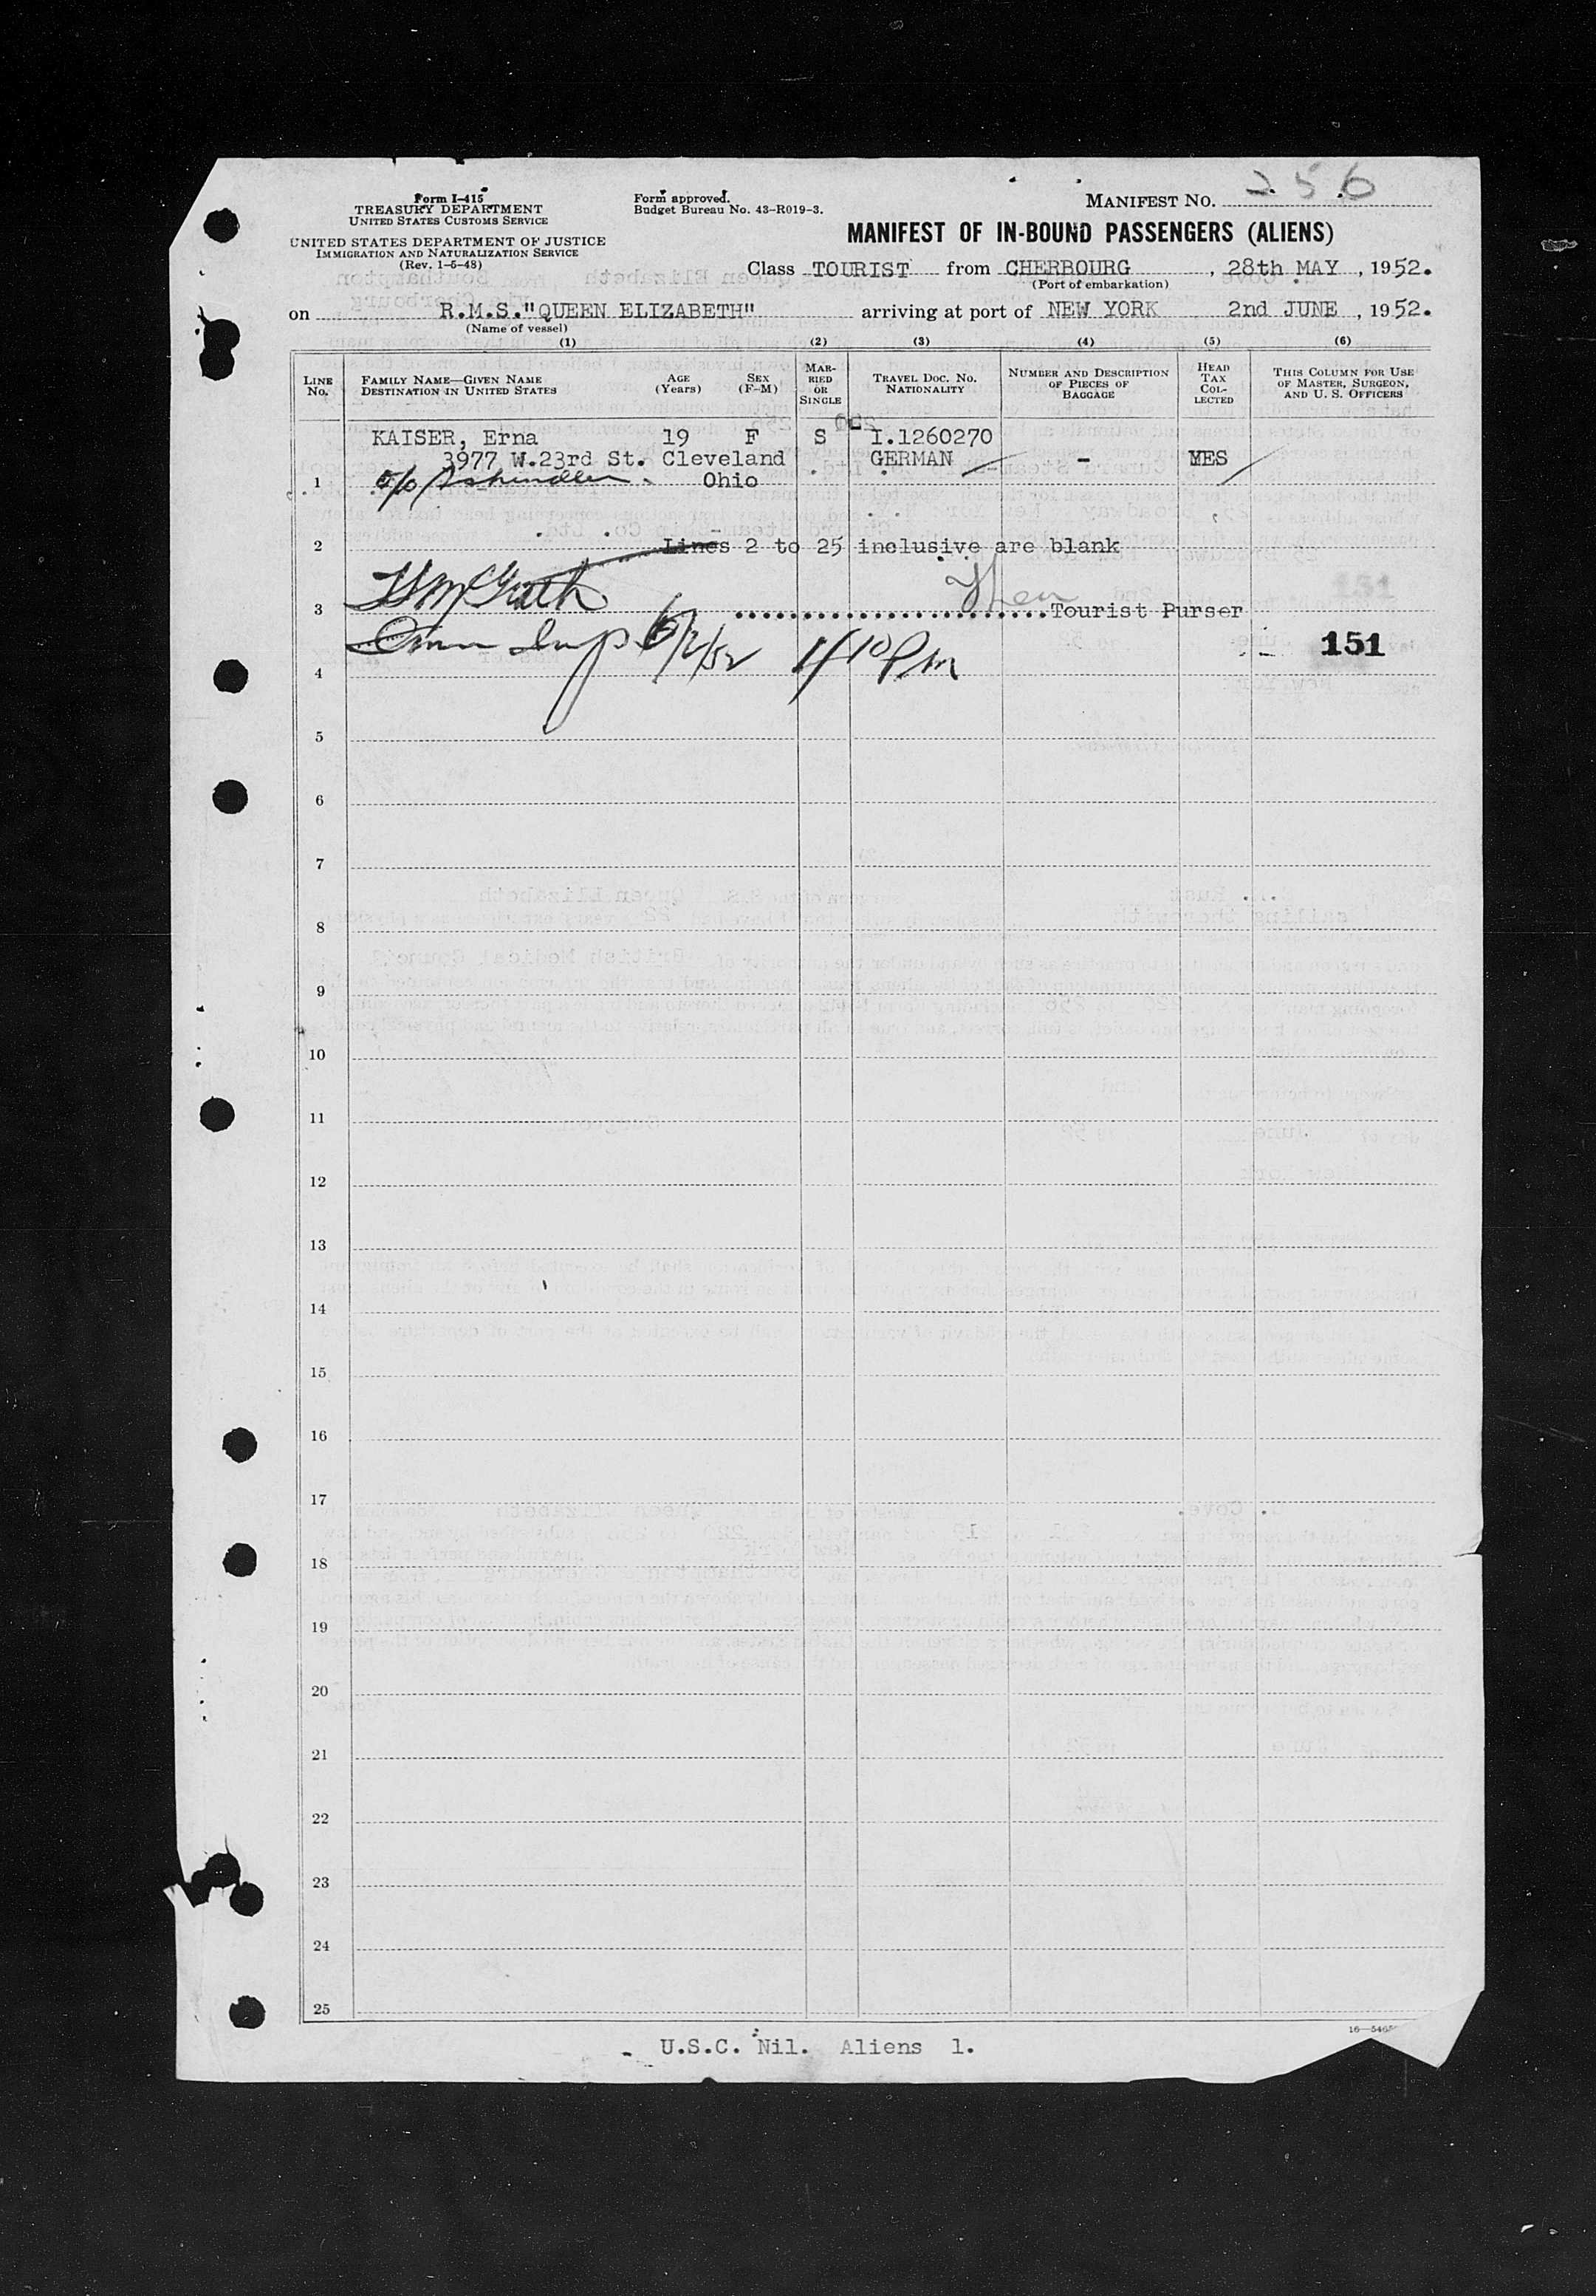 Form I-415
TREASURY DEPARTMENT
UNITED STATES CUSTOMS SERVICE
UNITED STATES DEPARTMENT OF JUSTICE
IMMIGRATION AND NATURALIZATION SERVICE
(Rev. 1-5-48)
Form approved.
Budget Bureau No. 43-R019-3.
MANIFEST NO. 256
MANIFEST OF IN-BOUND PASSENGERS (ALIENS)
Class TOURIST from CHERBOURG, 28th MAY, 1952.
(Port of embarkation)
on R.M.S."QUEEN ELIZABETH" arriving at port of NEW YORK 2nd JUNE, 1952.
(Name of vessel)
(1) (2) (3) (4) (5) (6)
LINE No. FAMILY NAME—GIVEN NAME DESTINATION IN UNITED STATES AGE (Years) SEX (F-M) MARRIED OR SINGLE TRAVEL DOC. NO. NATIONALITY NUMBER AND DESCRIPTION OF PIECES OF BAGGAGE HEAD TAX COLLECTED THIS COLUMN FOR USE OF MASTER, SURGEON, AND U. S. OFFICERS
KAISER, Erna 19 F S I.1260270
3977 W.23rd St. Cleveland GERMAN - YES
1 c/o Ohio
2 Lines 2 to 25 inclusive are blank
3 Tourist Purser
Imm Insp 6/2/52 410 PM 151
4
5
6
7
8
9
10
11
12
13
14
15
16
17
18
19
20
21
22
23
24
25
U.S.C. Nil. Aliens 1.